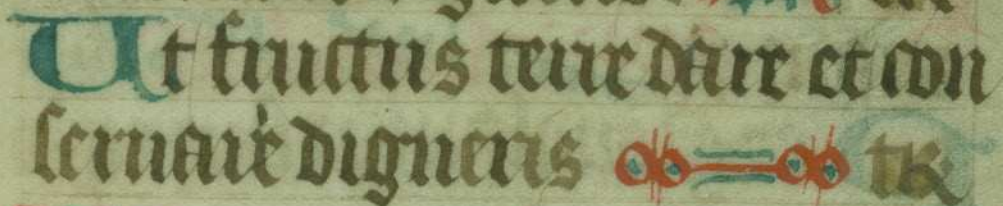 Ut fructus terre dare et con
seruare digneris t&